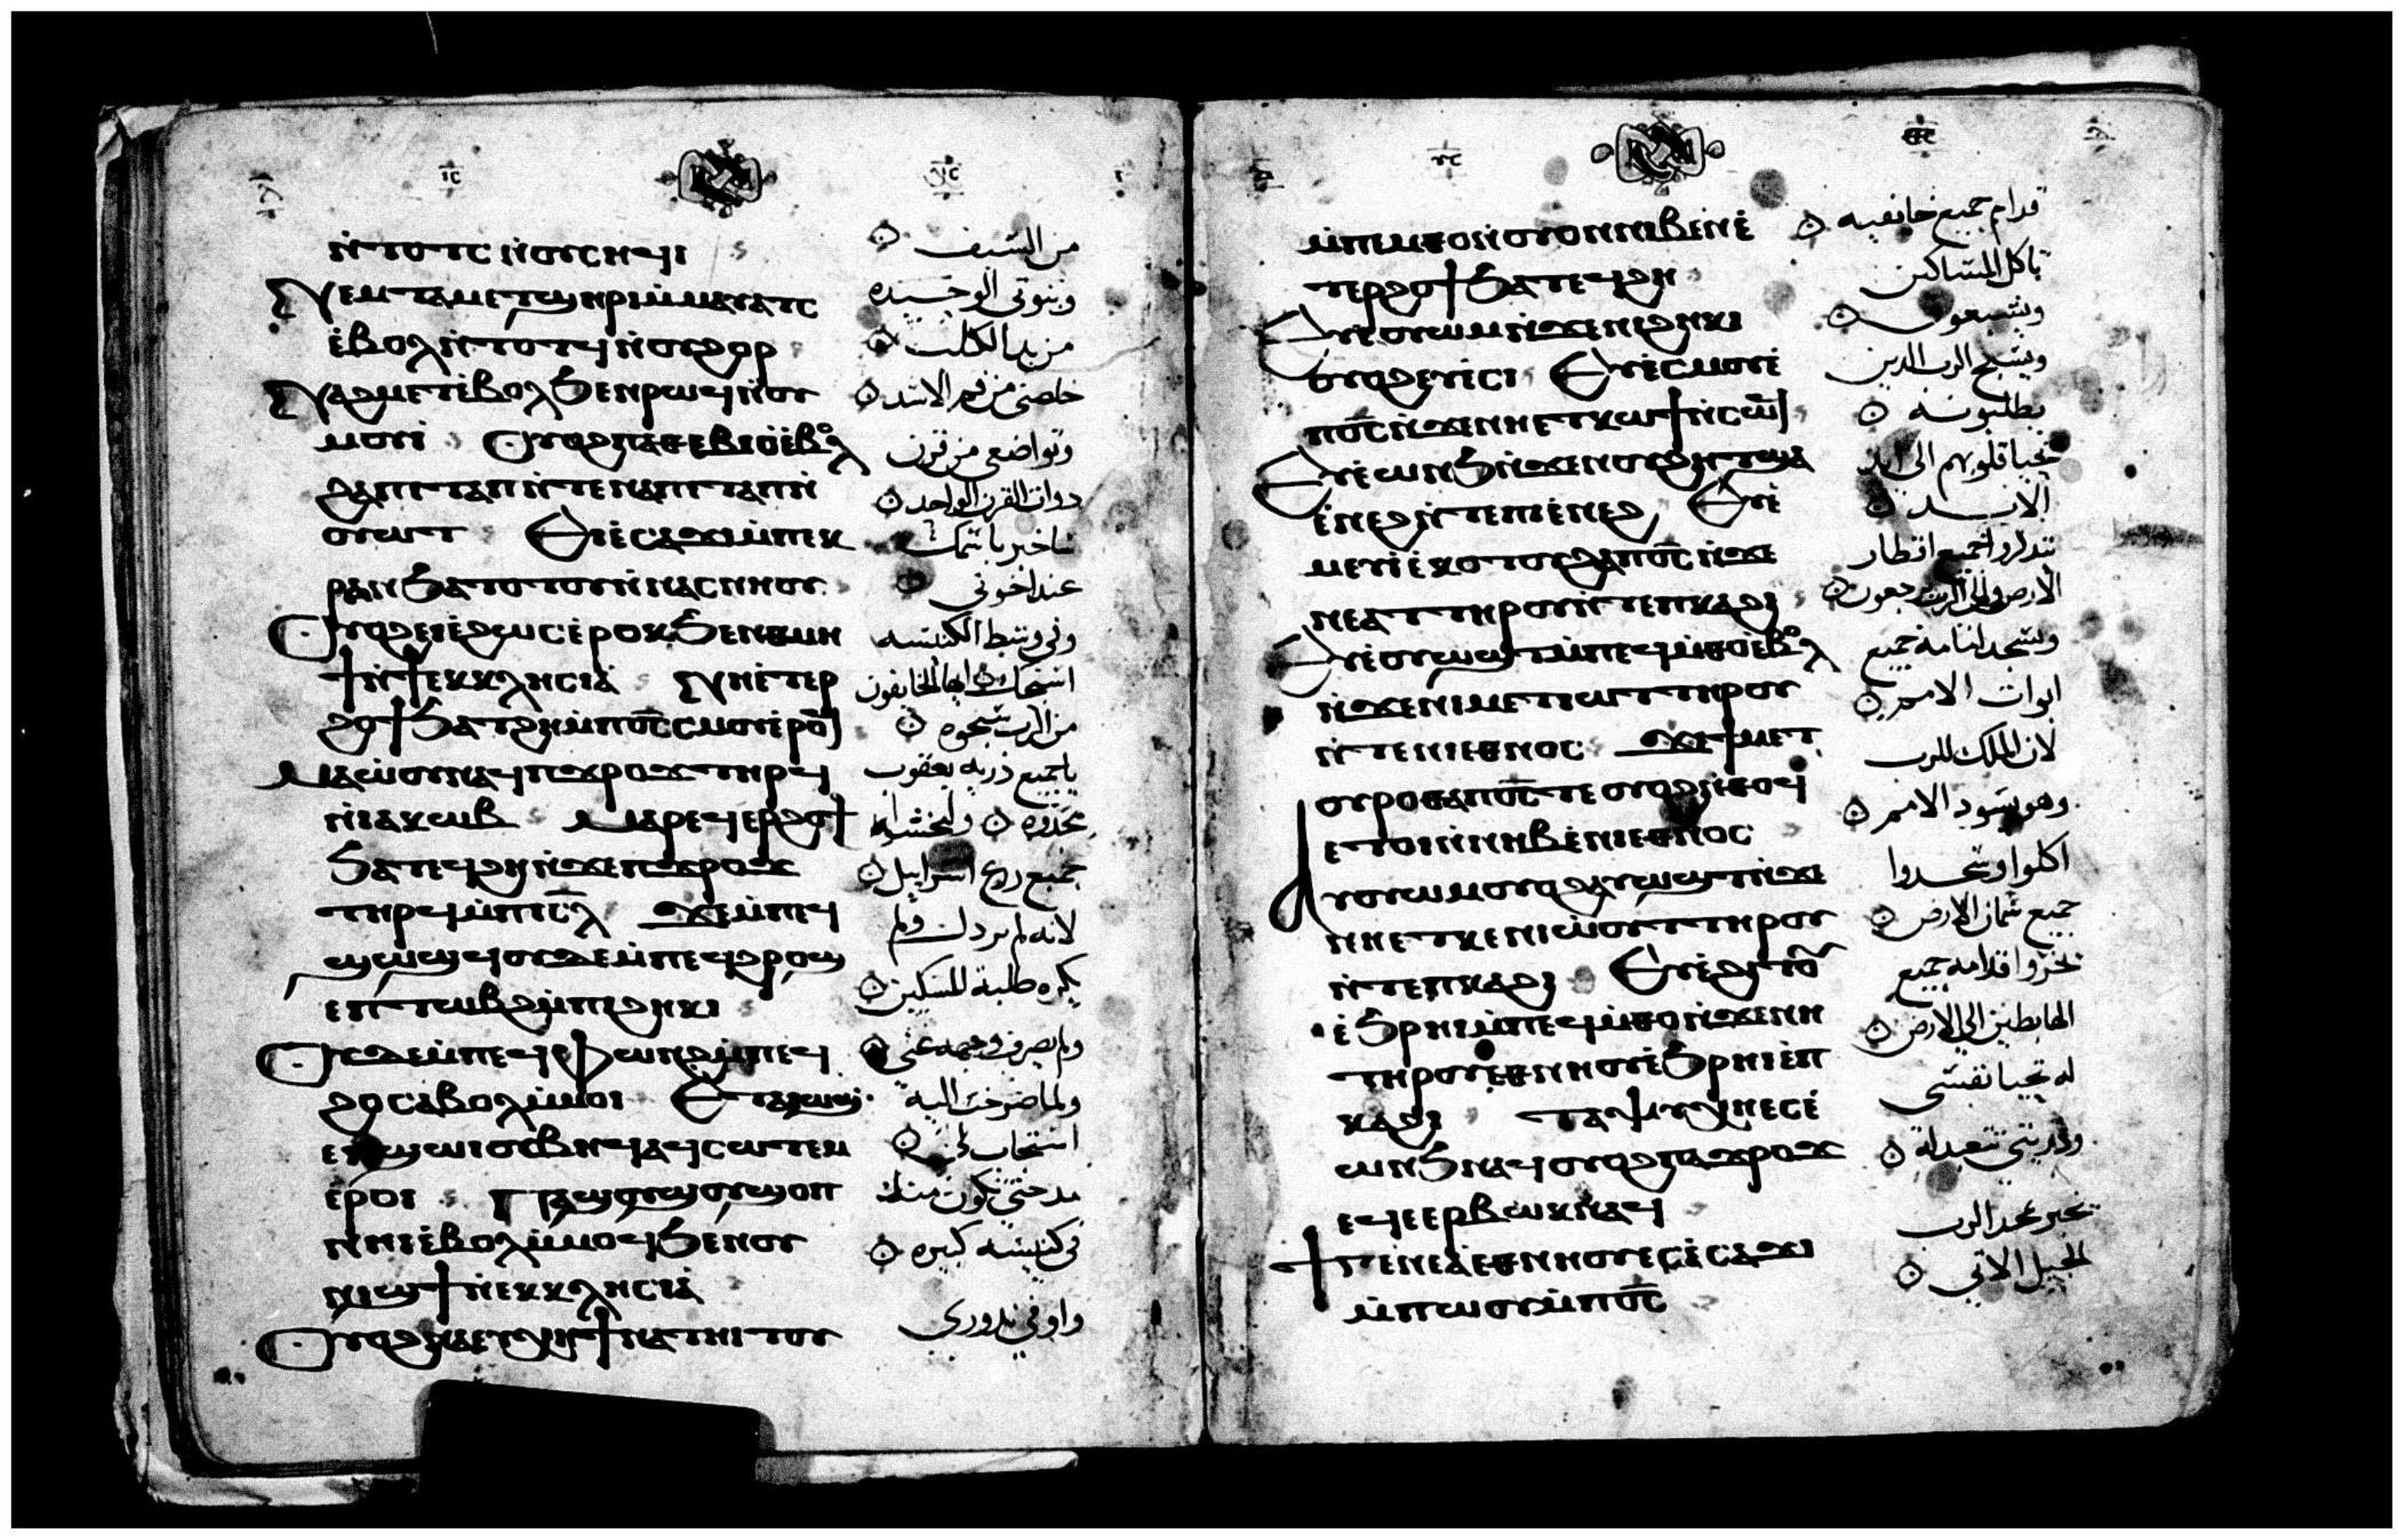 ⲛ̀ⲧⲟⲧⲥ ⲛ̀ⲟⲩⲥⲏϥⲓ
ⲛⲉⲙ ⲧⲁⲙⲉⲧϣⲏⲣⲓ ⲙ̀ⲙⲁⲩⲁⲧⲥ
ⲉ̀ⲃⲟⲗ ⲛ̀ⲧⲟⲧϥ ⲛ̀ⲟⲩϩⲟⲣ
ⲛⲁϩⲙⲉⲧ ⲉ̀ⲃⲟⲗ ϧⲉⲛ ⲣⲱϥ ⲛ̀ⲟⲩ
ⲙⲟⲩⲓ̀ ⲟⲩⲟϩ ⲡⲁⲑⲉⲃⲓⲟ ⲉ̀ⲃⲟⲗ
ϩⲁⲡⲓⲧⲁⲡ ⲛ̀ⲧⲉ ⲛⲁⲡⲓⲧⲁⲡ ⲛ̀
ⲟⲩⲱⲧ ⲉⲓⲉ̀ⲥⲁϫⲓ ⲙ̀ⲡⲉⲕ
ⲣⲁⲛ ϧⲁⲧⲟⲧⲟⲩ ⲛ̀ⲛⲁⲥⲛⲏⲟⲩ
ⲟⲩⲟϩ ⲉⲓⲉ̀ϩⲱⲥ ⲉ̀ⲣⲟⲕ ϧⲉⲛ ⲑⲙⲏ
ϯ ⲛ̀ϯⲉⲕⲕⲗⲏⲥⲓⲁ̀ ⲛⲏⲉ̀ⲧⲉⲣ
ϩⲟϯ ϧⲁⲧϩⲏ ⲙ̀ⲡⲟ̅ⲥ̅ ⲥⲙⲟⲩ ⲉ̀ⲣⲟϥ
ⲙⲁⲱ̀ⲟⲩ ⲛⲁϥ ⲡϫⲣⲟϫ ⲧⲏⲣϥ
ⲛ̀ⲓⲁⲕⲱⲃ ⲙⲁⲣⲉϥⲉⲣϩⲟϯ
ϧⲁⲧⲉϥϩⲏ ⲛ̀ϫⲉ ⲡϫⲣⲟϫ
ⲧⲏⲣϥ ⲙ̀ⲡⲓⲥ̅ⲗ̅ ϫⲉ ⲙ̀ⲡⲉϥ
ϣⲱϣϥ ⲟⲩⲇⲉ ⲙ̀ⲡⲉϥϩⲣⲟϣ
ⲉⲡⲧⲱⲃϩ ⲙ̀ⲡⲓϩⲏⲕⲓ
ⲟⲩⲇⲉ ⲙ̀ⲡⲉϥⲫⲱⲛϩ ⲙ̀ⲡⲉϥ
ϩⲟ ⲥⲁⲃⲟⲗ ⲙ̀ⲙⲟⲓ ⲉⲧⲁⲓⲱϣ
ⲉ̀ⲡϣⲱⲓ ⲟⲩⲃⲏϥ ⲁϥⲥⲱⲧⲉⲙ
ⲉ̀ⲣⲟⲓ ⲡⲁϣⲟⲩϣⲟⲩ ϣⲟⲡ
ⲛⲏⲓ ⲉ̀ⲃⲟⲗ ⲙ̀ⲙⲟϥ ϧⲉⲛ ⲟⲩ
ⲛⲓϣϯ ⲛ̀ⲉⲕⲕⲗⲏⲥⲓⲁ̀
ⲟⲩⲟϩ ⲛⲁⲉⲩⲭⲏ ϯⲛⲁⲧⲏⲓⲧⲟⲩ
من السيف
وبنوتى الوحيده
من يد الكلب
خلصنى من فم الاسد
وتواضعى من قرن
دوات القرن الواحد
ساخبر باسمك
عند اخوتى
وفى وسط الكنيسه
اسبحك ايها الخايفون
من الرب سبحوه
يا جميع ذريه يعقوب
مجدوه وليخشاه
جميع زرع اسراييل
لانه لم يردل ولم
يكره طلبة المسكين
ولم يصرف وجهه عنى
ولما صرخت اليه
استجاب لى
مدحتى تكون منك
فى كنيسه كبيره
واوفى ندورى
ⲙ̀ⲡⲉⲙⲑⲟ ⲛ̀ⲟⲩⲟⲛ ⲛⲓⲃⲉⲛ ⲉ̀
ⲧⲉⲣϩⲟϯ ϧⲁⲧⲉϥϩⲏ
ⲉⲩⲉ̀ⲟⲩⲱⲙ ⲛ̀ϫⲉ ⲛⲓϩⲏⲕⲓ
ⲟⲩⲟϩ ⲉⲩⲉ̀ⲥⲓ ⲉⲩⲉ̀ⲥⲙⲟⲩ ⲉ̀
ⲡⲟ̅ⲥ̅ ⲛ̀ϫⲉ ⲛⲏⲉⲧⲕⲱϯ ⲛ̀ⲥⲱϥ
ⲉⲩⲉ̀ⲱⲛϧ ⲛ̀ϫⲉ ⲛⲟⲩϩⲏⲧ ϣⲁ
ⲉ̀ⲛⲉϩ ⲛ̀ⲧⲉ ⲡⲓⲉ̀ⲛⲉϩ ⲉⲩⲉ̀
ⲙⲉⲩⲓ̀ ⲉ̀ⲕⲟⲧⲟⲩ ϩⲁ ⲡⲟ̅ⲥ̅ ⲛ̀ϫⲉ
ⲛⲉⲁⲧ ⲧⲏⲣⲟⲩ ⲛ̀ⲧⲉ ⲡⲕⲁϩⲓ
ⲉⲩⲉ̀ⲟⲩⲱϣⲧ ⲙ̀ⲡⲉϥⲙ̀ⲑⲟ ⲉ̀ⲃⲟⲗ
ⲛ̀ϫⲉ ⲛⲓⲙⲉⲧⲓⲱⲧ ⲧⲏⲣⲟⲩ
ⲛ̀ⲧⲉ ⲛⲓⲉⲑⲛⲟⲥ ϫⲉ ϯⲙⲉⲧ
ⲟⲩⲣⲟ ⲑⲁ ⲡⲟ̅ⲥ̅ ⲧⲉ ⲟⲩⲟϩ ⲛ̀ⲑⲟϥ
ⲉⲧⲟⲓ ⲛ̀ⲛⲏⲃ ⲉ̀ⲛⲓⲉⲑⲛⲟⲥ
ⲁⲩⲟⲩⲱⲙ ⲟⲩⲟϩ ⲁⲩⲟⲩⲱϣⲧ ⲛ̀ϫⲉ
ⲛⲏⲉⲧⲕⲉⲛⲓⲱ̀ⲟⲩⲧ ⲧⲏⲣⲟⲩ
ⲛ̀ⲧⲉ ⲡⲕⲁϩⲓ ⲉⲩⲉ̀ϩⲓⲧⲟⲩ
ⲉ̀ϧⲣⲏⲓ ⲙ̀ⲡⲉϥⲙ̀ⲑⲟ ⲛ̀ϫⲉ ⲛⲏ
ⲧⲏⲣⲟⲩ ⲉⲑⲛⲏⲟⲩ ⲉ̀ϧⲣⲏⲓ ⲉ̀ⲡ
ⲕⲁϩⲓ ⲧⲁⲯⲩⲭⲏ ⲉⲥⲉ̀
ⲱⲛϧ ⲛⲁϥ ⲟⲩⲟϩ ⲡⲁϫⲣⲟϫ
ⲉϥⲉⲉⲣⲃⲱⲕ ⲛⲁϥ
ϯⲅⲉⲛⲉⲁ̀ ⲉⲑⲛⲏⲟⲩ ⲉⲥⲉ̀ⲥⲁϫⲓ
ⲙ̀ⲡⲱⲟⲩ ⲙ̀ⲡⲟ̅ⲥ̅
قدام جميع خايفيه
ياكل المساكين
ويشبعون
ويسبح الرب الدين
يطلبونه
تحيا قلوبهم الى ابد
الابد
تتدكروا جميع اقطار
الارض والى الرب يرجعون
وتسجد امامه جميع
ابوات الامم
لان الملك للرب
وهو يسود الامم
اكلوا وسجدوا
جميع سمان الارض
تخروا قدامه جميع
الهابطين الى الارض
له تحيا نفسى
ودريتى تتعبد له
تخبر بمجد الرب
الجيل الاتى